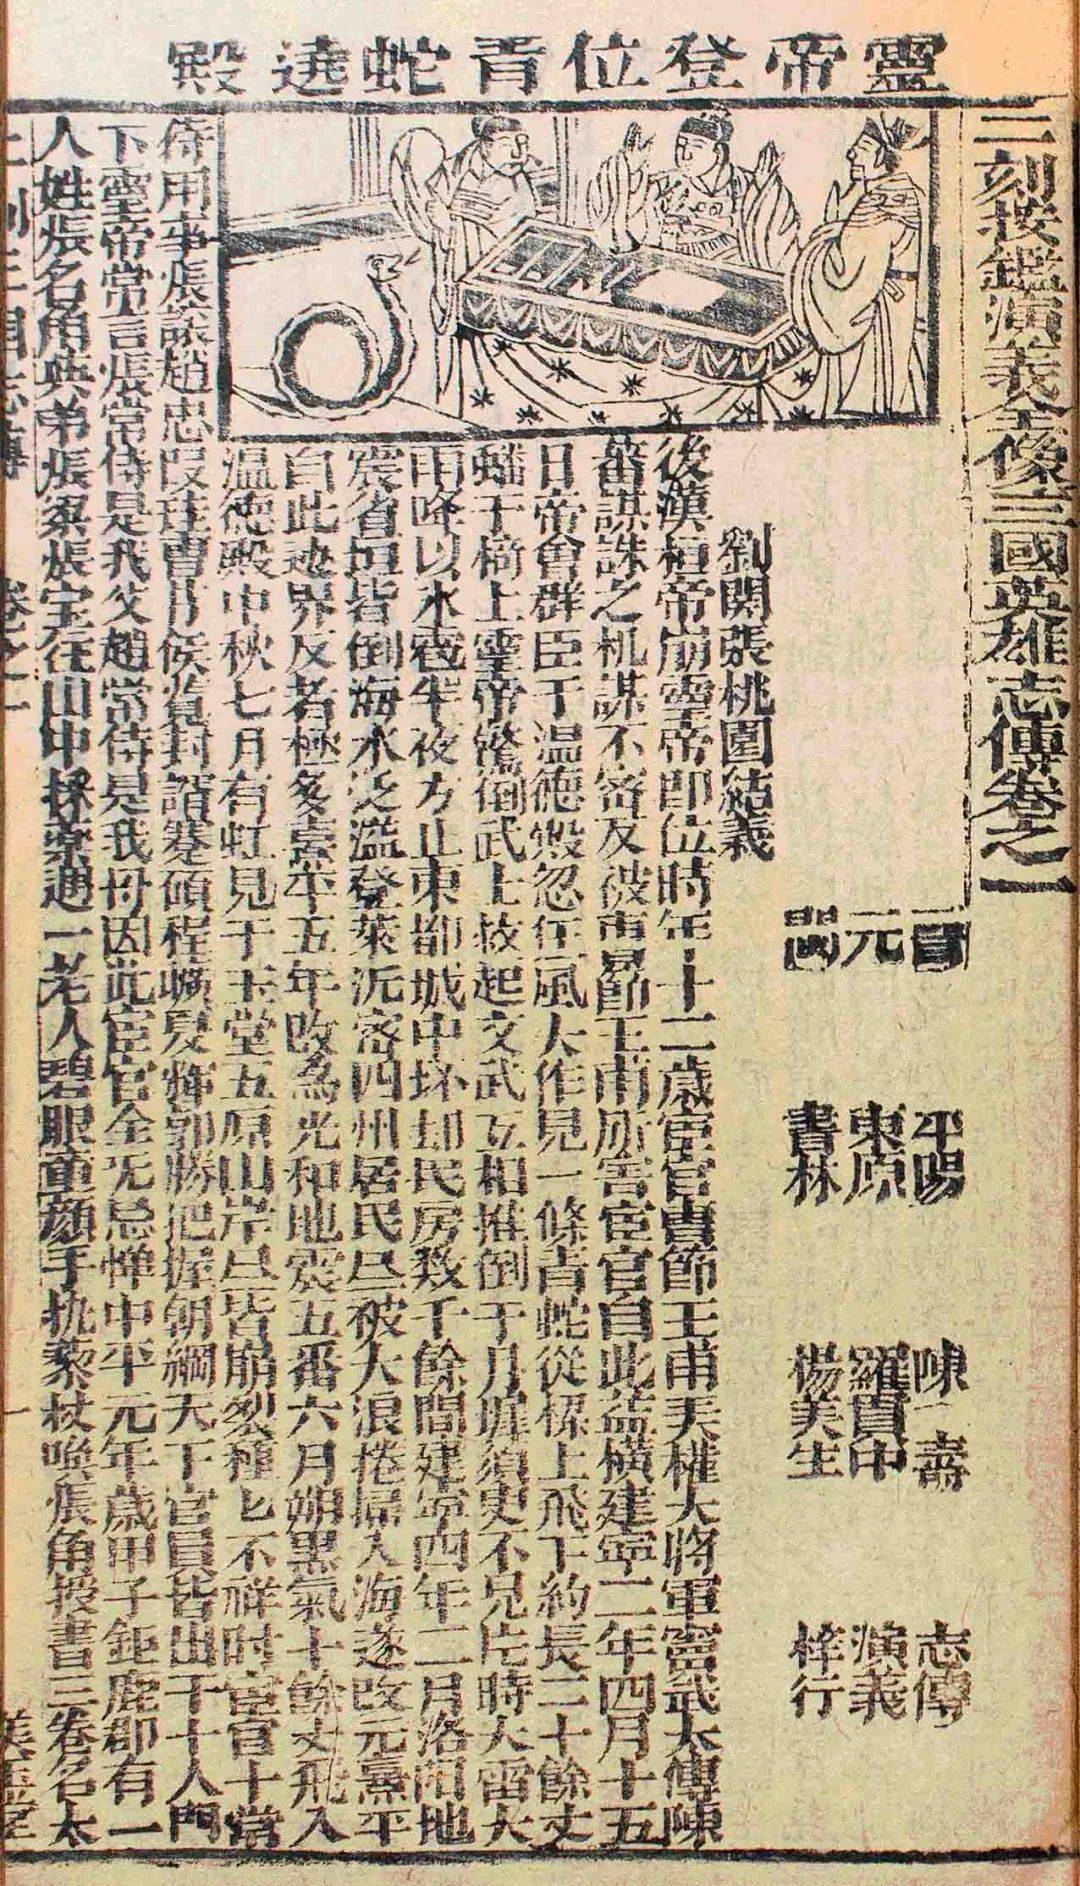 靈帝登位青蛇遶殿
三刻按鑑演義全像三國英雄志傳卷之一
晉 平陽 陳壽 志傳
元 東原 羅貫中 演義
閩 書林 楊美生 梓行
劉關張桃園結義
後漢桓帝崩靈帝即位時年十二歲宦官曹節王甫弄權大將軍竇武太傅陳
蕃謀誅之机謀不密反被曹節王甫所害宦官自此益橫建寧二年四月十五
日帝會群臣于温德殿忽狂風大作見一條青蛇從樑上飛下約長二十餘丈
蟠于椅上靈帝驚倒武士救起文武互相推倒于丹墀須史不見片時大雷大
雨降以冰雹半夜方止東都城中坏却民房数千餘間建寧四年二月洛阳地
震省垣皆倒海水泛濫登萊沂密四州居民尽被大浪捲掃入海遂改元熹平
自此边界反者極多熹平五年改為光和地震五番六月朔黑氣十餘丈飛入
温德殿中秋七月有虹見于玉堂五原山岸尽皆崩裂種匕不祥时宦官十常
侍用事張讓趙忠段珪曹節侯覽封諝蹇碩程曠夏輝郭勝把握朝綱天下官員皆出于十人門
下靈帝常言張常侍是我父趙常侍是我母因此宦官全无忌憚中平元年歲甲子鉅鹿郡有一
人姓張名角與弟張梁張宝往山中採藥遇一老人碧眼童顔手执藜杖喚張角授書三卷名太
卷之一 一